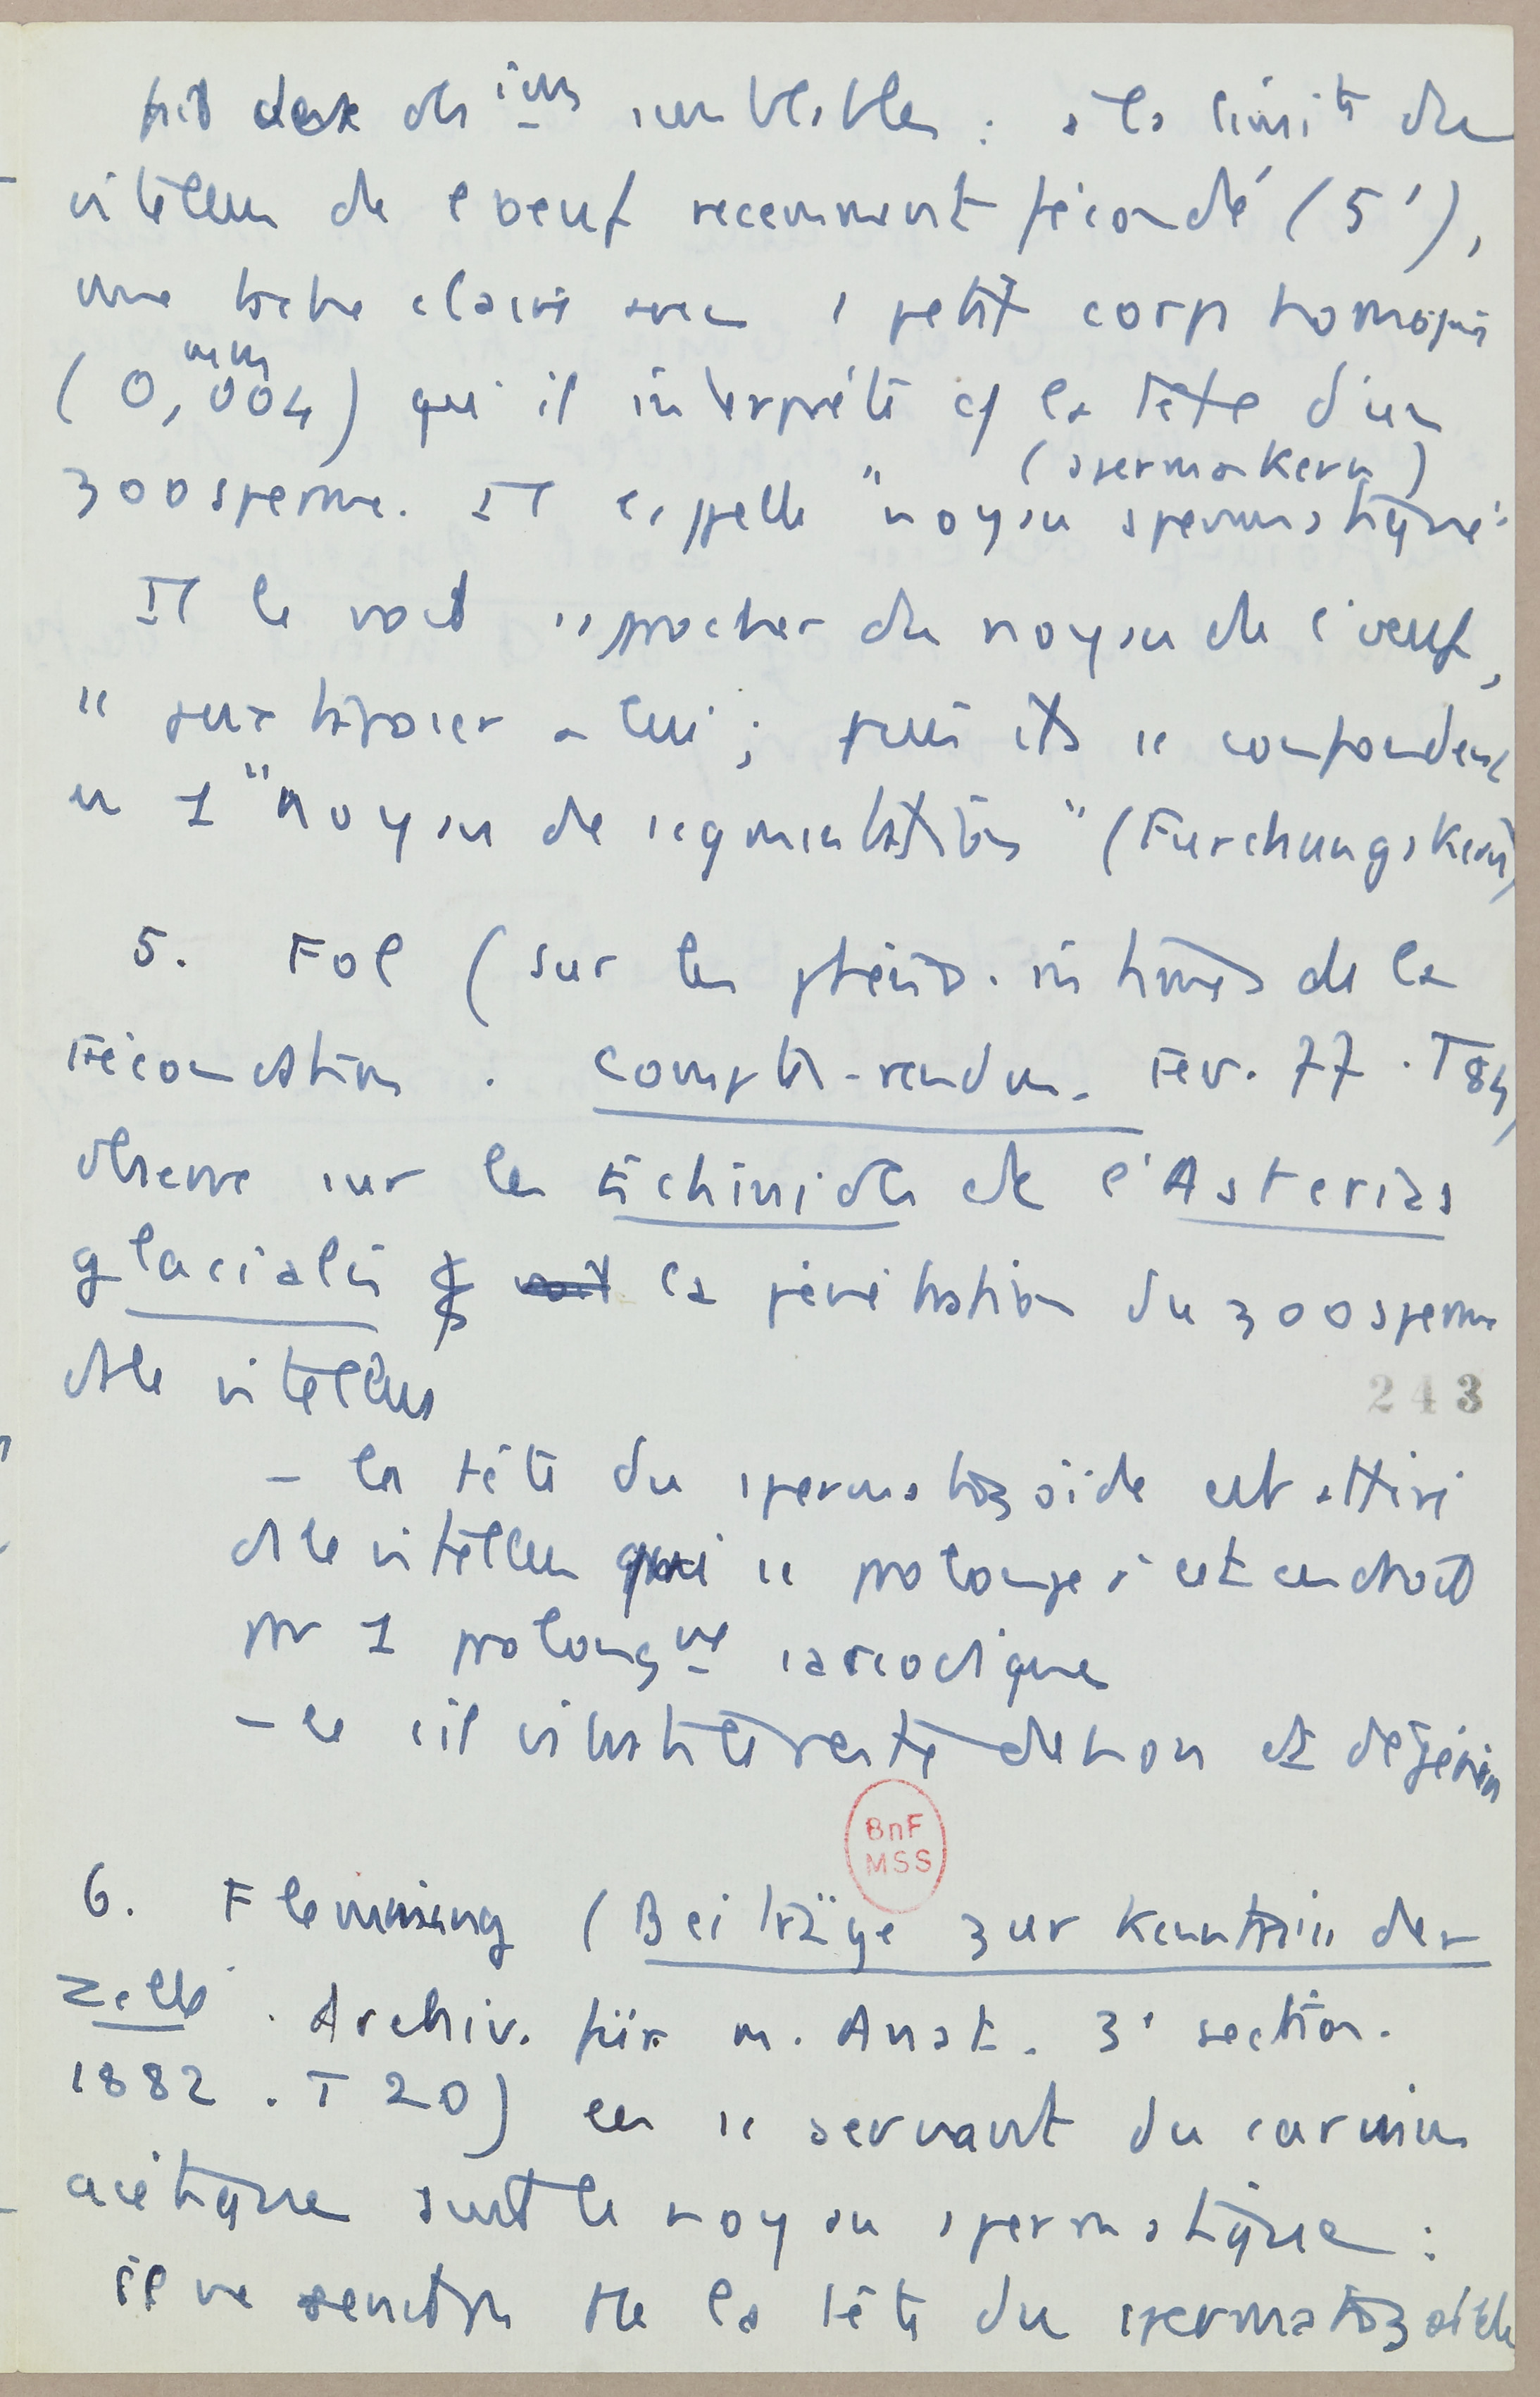 fait des obs ions semblables : a la limite du
vitellus de l'oeuf recemment fécondé (5'),
une tache claire avec 1 petit corps homogène
(0,004 mm) qu'il interprète cf la tête d'un
zoosperme. Il l'appelle "noyau spermatique"
(spermakern)
Il le voit s'approcher du noyau de l'oeuf,
se juxtaposer a lui ; puis ils se confondent
en 1 "noyau de segmentation" (Furchungskern)
5. Fol (sur les phéno. intimes de la
Fécondation . Comptes-rendus. Fev. 77 . T 84)
observe sur les Echinides et l'Asterias
glacialis la pénétration du zoosperme
ds le vitellus
243
- la tête du spermatozoïde est attiré
ds le vitellus qui se prolonge à cet endroit
par 1 prolongt sarcodique
- le cil vibratile reste dehors et dégénère
BnF
MSS
6. Flemming (Beiträge zur Kenntniss der
Zelle . Archiv. für m. Anat. 3e section.
1882 . T 20) en se servant du carmin
acétique suit le noyau spermatique :
il ne de la tête du spermatozoïde